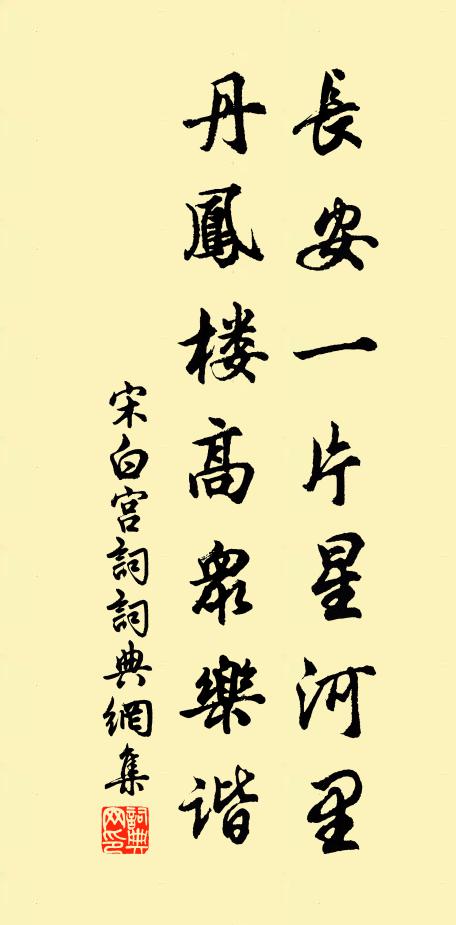 長安一片星河里
丹鳳楼高衆樂谐
宋白宫詞詞典網集
詞典网印